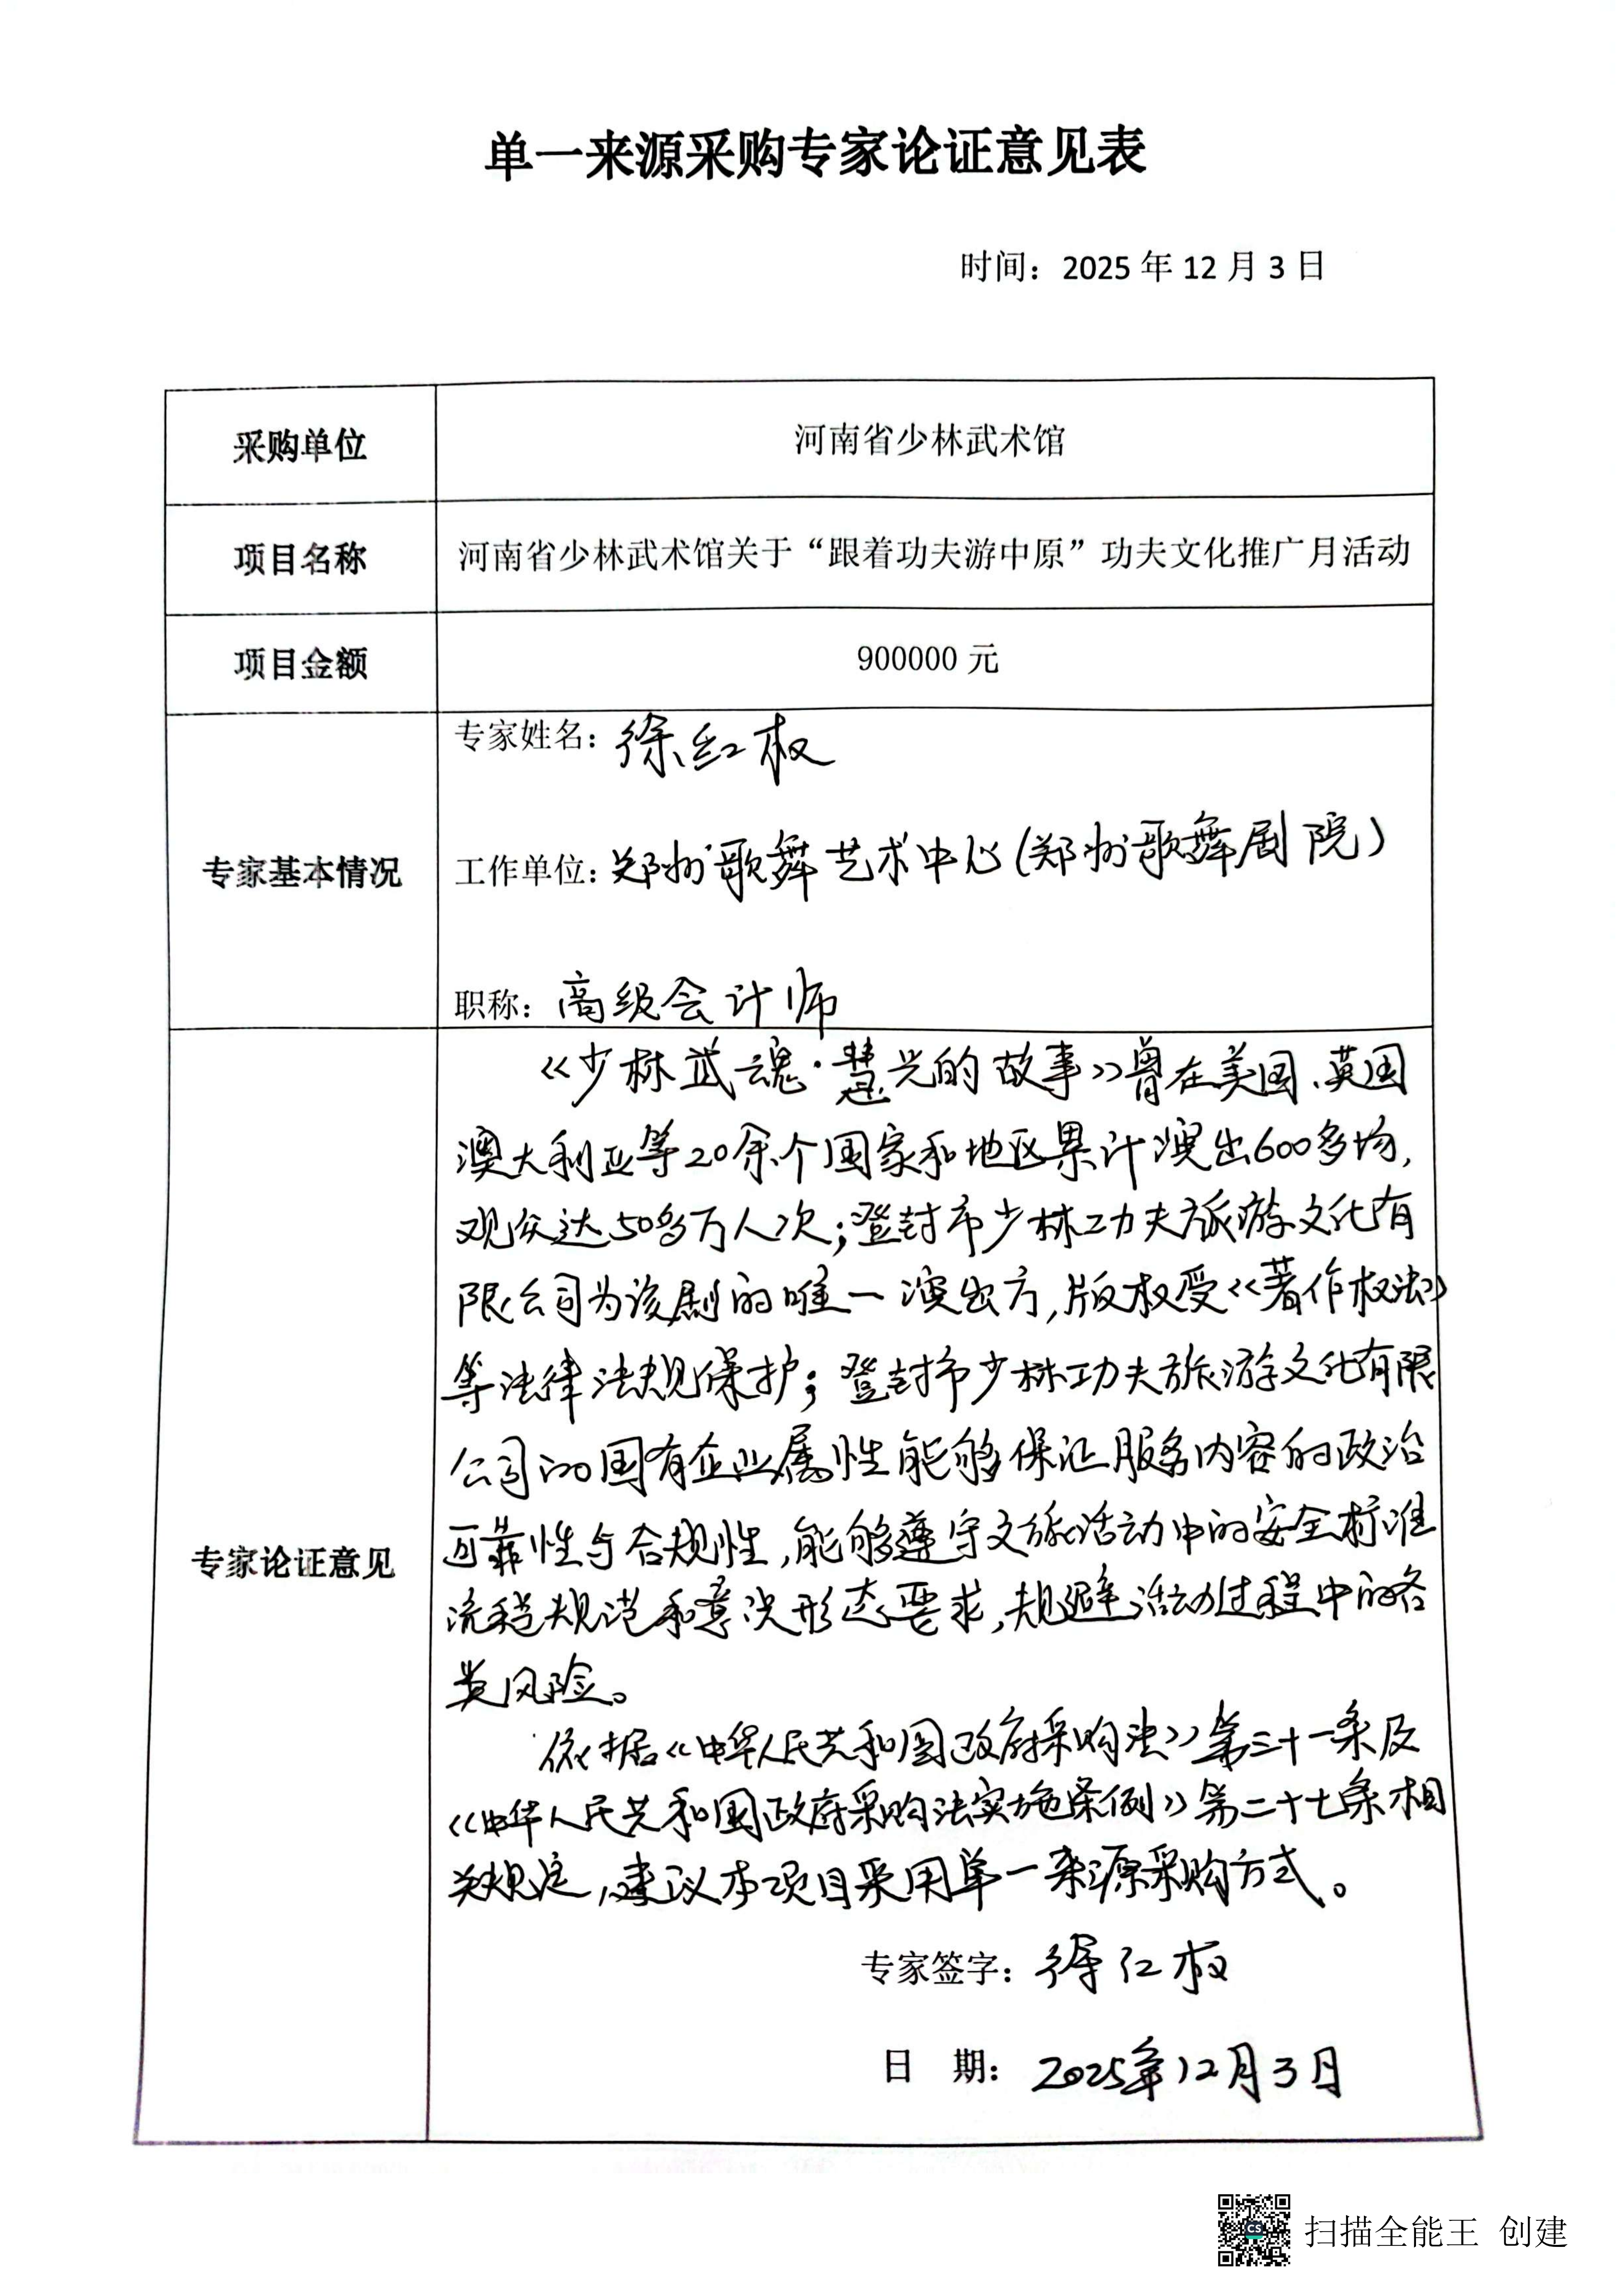 单一来源采购专家论证意见表
时间：2025 年 12 月 3 日
采购单位
河南省少林武术馆
项目名称
河南省少林武术馆关于“跟着功夫游中原”功夫文化推广月活动
项目金额
900000 元
专家基本情况
专家姓名：徐红权
工作单位：郑州歌舞艺术中心(郑州歌舞剧院)
职称：高级会计师
专家论证意见
《少林武魂·慧光的故事》曾在美国、英国
澳大利亚等20余个国家和地区累计演出600多场，
观众达50多万人次；登封市少林功夫旅游文化有
限公司为该剧的唯一演出方，版权受《著作权法》
等法律法规保护；登封市少林功夫旅游文化有限
公司的国有企业属性能够保证服务内容的政治
可靠性与合规性，能够遵守文旅活动中的安全标准
流程规范和意识形态要求，规避活动过程中的各
类风险。
依据《中华人民共和国政府采购法》第三十一条及
《中华人民共和国政府采购法实施条例》第二十七条相
关规定，建议本项目采用单一来源采购方式。
专家签字：徐红权
日 期：2025年12月3日
扫描全能王 创建